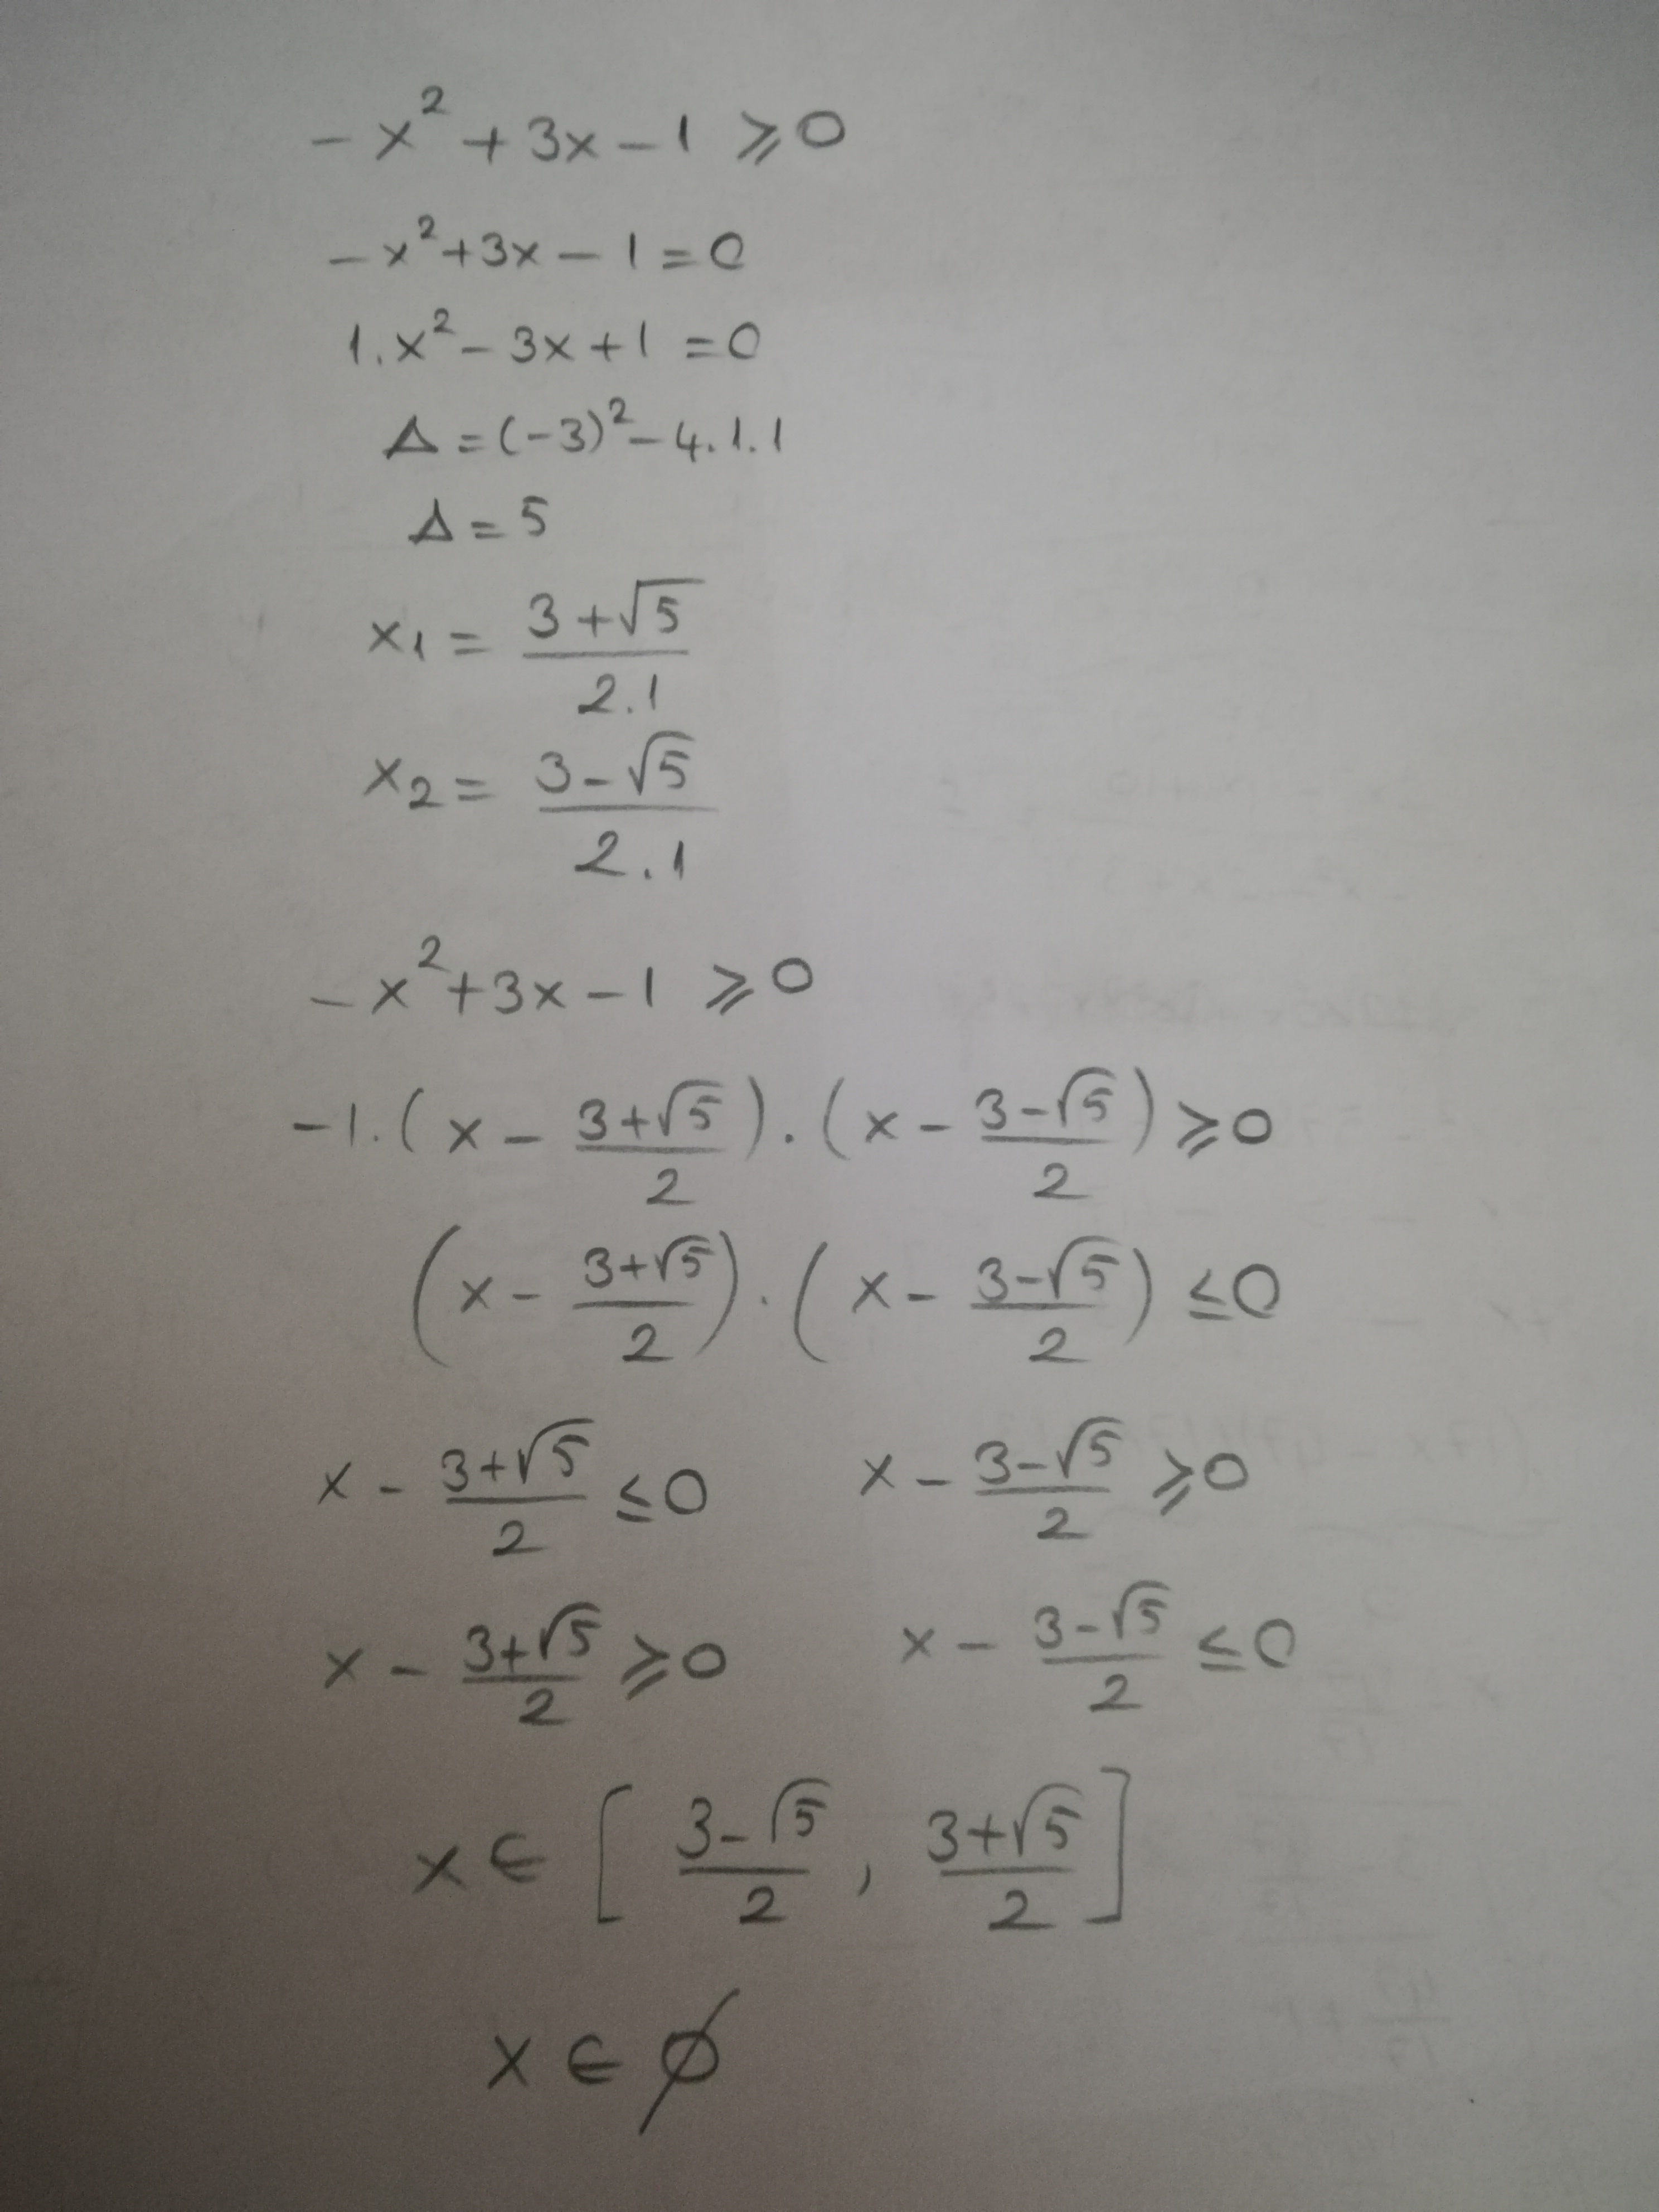 -x² + 3x - 1 ⩾ 0
-x² + 3x - 1 = 0
1.x² - 3x + 1 = 0
Δ = (-3)² - 4.1.1
Δ = 5
x₁ = (3 + √5)/(2.1)
x₂ = (3 - √5)/(2.1)
-x² + 3x - 1 ⩾ 0
-1.(x - (3+√5)/2).(x - (3-√5)/2) ⩾ 0
(x - (3+√5)/2).(x - (3-√5)/2) ≤ 0
x - (3+√5)/2 ≤ 0 x - (3-√5)/2 ⩾ 0
x - (3+√5)/2 ⩾ 0 x - (3-√5)/2 ≤ 0
x ∈ [(3-√5)/2, (3+√5)/2]
x ∈ ∅